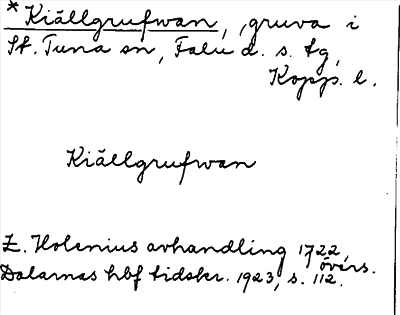 * Kiällgrufwan, gruva i
St. Tuna sn, Falu d. s. tg,
Kopp. l.
Kiällgrufwan
E. Holenius avhandling 1722,
övers.
Dalarnas hbf tidskr. 1923, s. 112.